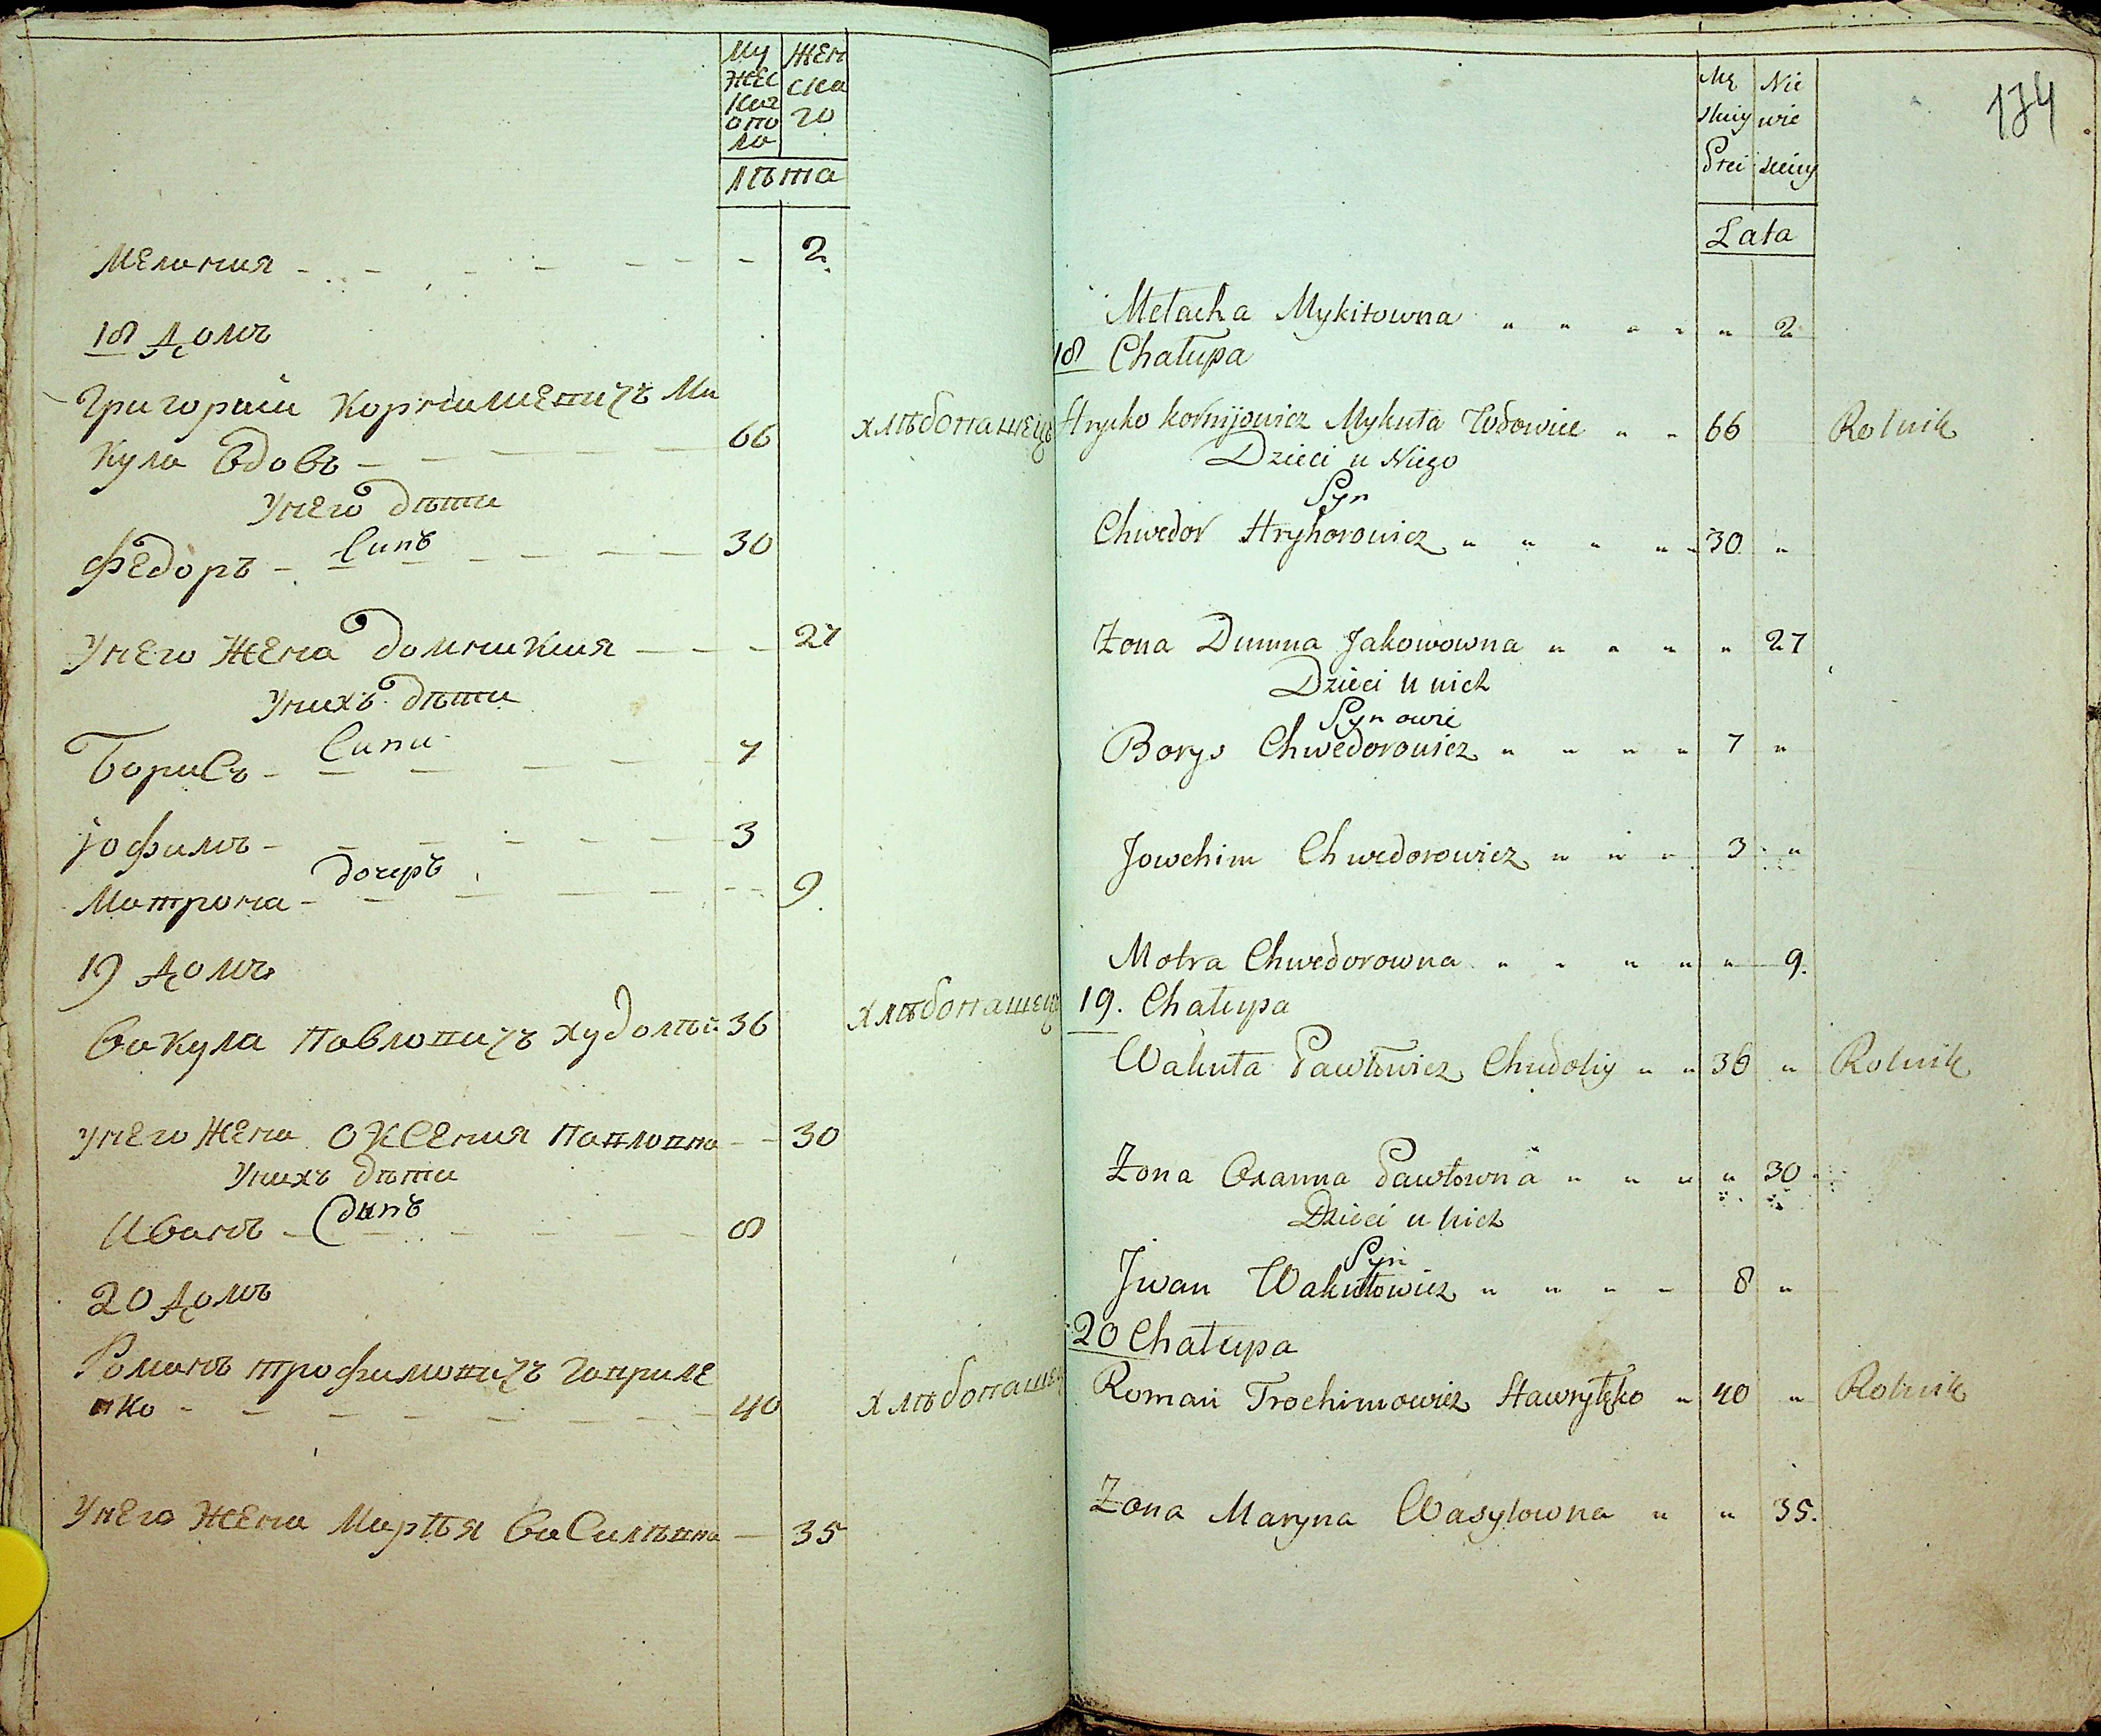 Му
жес
каг
опо
ла
жен
ска
го
лѣта
Мелания - - - - - - - 2
18 домъ
Григорий Корнилиевичъ Ми
кула вдовъ - - - - - 66 хлѣбопашецъ
Унего дѣти
Синъ
Федоръ - - - - - - 30
Унего жена домникия - - - 27
Унихъ дѣти
Сини
Борисъ - - - - - - 7
Іофимъ - - - - - - 3
дочеръ
Матрона - - - - - - 9
19 домъ
Вакула Павловичъ худолѣй 36 хлѣбопашец
унего жена Оксения Павловна - - 30
Унихъ дѣти
Синъ
Иванъ - - - - - - 8
20 домъ
Романъ трофимовичъ гавриле
нко - - - - - - - - 40 хлѣбопашец
Унего жена Марѣя Василѣвна - 35
174
Mę
skiey
Płci
Nie
wie
sciey
Lata
Melacha Mykitowna " " " " " 2
18 Chałupa
Hryćko kornijowicz Mykuła Wdowiec " " 66 Rolnik
Dzieci u Niego
Syn
Chwedor Hryhorowicz " " " " 30 "
Żona Dumna Jakowowna " " " " 27
Dzieci u nich
Synowie
Borys Chwedorowicz " " " " 7 "
Jowchim Chwedorowicz " " " 3 "
Motra Chwedorowna " " " " " 9.
19. Chałupa
Wakuła Pawłowicz Chudoliy " " 36 " Rolnik
Żona Oxanna Pawłowna " " " " 30
Dzieci u nich
Syn
Jwan Wakułowicz " " " " 8 "
20 Chałupa
Roman Trochimowicz Hawryłęko " 40 " Rolnik
Żona Maryna Wasylowna " " 35.